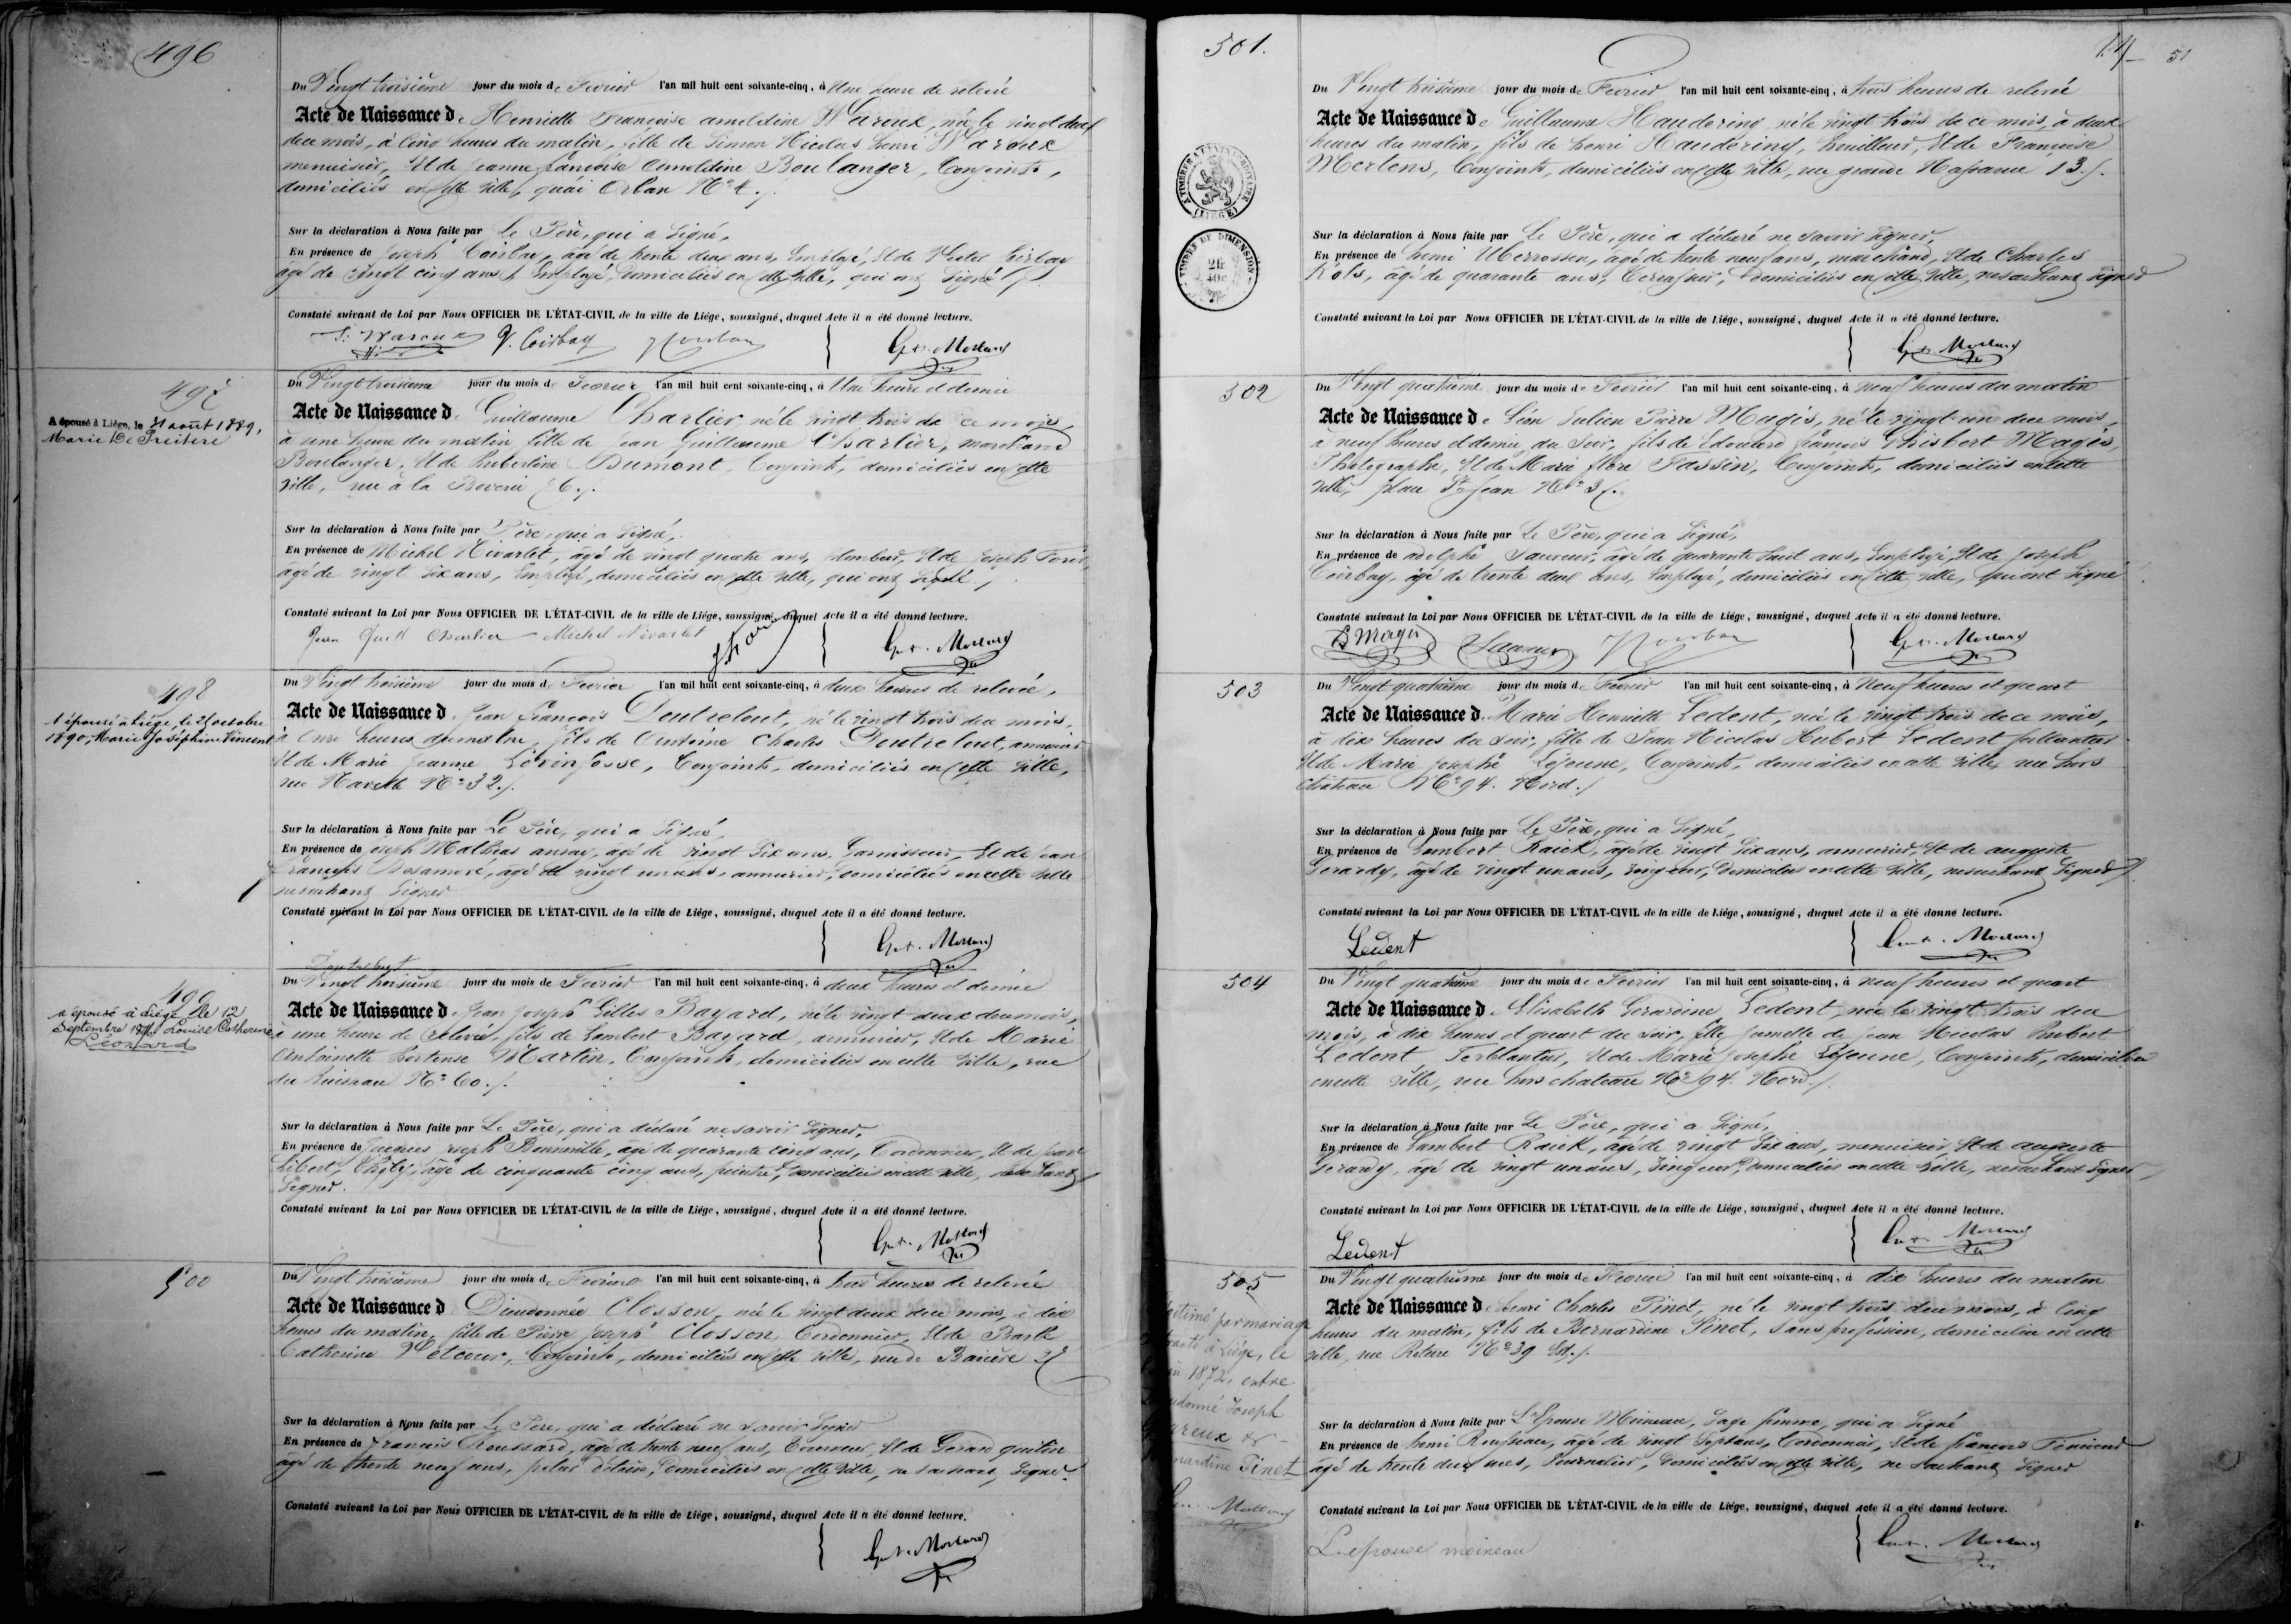 496
Du Vingt troisième jour du mois de Fevrier l'an mil huit cent soixante-cinq, à Une heure de relevée
Acte de Naissance de Henriette Françoise Arnoldine Waroux, née le vingt deux
de ce mois, à Cinq heures du matin, fille de Simon Nicolas henri Waroux
menuisier, Et de Jeanne françoise Arnoldine Boulanger, Conjoints,
domiciliés en cette Ville, quai Orban N° 4./.
Sur la déclaration à Nous faite par Le Père, qui a Signé,
En présence de Joseph Coirbay, âgé de trente deux ans, Employé, Et de Victor Coirbay
âgé de vingt cinq ans, Employé, Domiciliés en cette Ville, qui ont Signé ./.
Constaté suivant de Loi par Nous OFFICIER DE L'ÉTAT-CIVIL de la ville de Liége, soussigné, duquel Acte il a été donné lecture.
S. Waroux V. Coirbay
497
A épousé à Liège, le 31 août 1889,
Marie De Preitere
Du Vingt troisième jour du mois de Fevrier l'an mil huit cent soixante-cinq, à Une heure et demie
Acte de Naissance de Guillaume Charlier, né le vingt trois de ce mois,
à une heure du matin fille de Jean Guillaume Charlier, marchand
Boulanger, Et de Hubertine Dumont, Conjoints, domiciliés en cette
Ville, rue à la Boverie 6./.
Sur la déclaration à Nous faite par Père, qui a Signé,
En présence de Michel Nivarlet, âgé de vingt quatre ans, plombier, Et de Joseph
âgé de vingt Six ans, Employé, domiciliés en cette Ville, qui ont Signé,
Constaté suivant la Loi par Nous OFFICIER DE L'ÉTAT-CIVIL de la ville de Liége, soussigné, duquel Acte il a été donné lecture.
Jean Guill Charlier Michel Nivarlet
498
A épousé à Liège, le 25 octobre
1890, Marie Joséphine Vincent
Du Vingt troisième jour du mois de Fevrier l'an mil huit cent soixante-cinq, à deux heures de relevée,
Acte de Naissance de Jean François Doutrelout, né le vingt trois de ce mois,
à Onze heures du matin, fils de Antoine Charles Doutrelout, armurier
Et de Marie Jeanne Lévinfosse, Conjoints, domiciliés en cette Ville,
rue Navette N° 32./.
Sur la déclaration à Nous faite par Le Père, qui a Signé,
En présence de Joseph Mathias Ansay, âgé de vingt Six ans, Garnisseur, Et de Jean
François Dosamoré, âgé de vingt un ans, armurier, domiciliés en cette Ville
ne sachant Signer
Constaté suivant la Loi par Nous OFFICIER DE L'ÉTAT-CIVIL de la ville de Liége, soussigné, duquel Acte il a été donné lecture.
499
A épousé à Liège, le 12
Septembre Louise Catherine
Léonard
Du Vingt troisième jour du mois de Fevrier l'an mil huit cent soixante-cinq, à deux heures et demie
Acte de Naissance de Jean Joseph Gilles Bayard, né le vingt deux de ce mois,
à une heure de relevée, fils de Lambert Bayard, armurier, Et de Marie
Antoinette Hortense Martin, Conjoints, domiciliés en cette Ville, rue
du Ruisseau N° 60./.
Sur la déclaration à Nous faite par Le Père, qui a déclaré ne savoir Signer,
En présence de Jacques Joseph Bonneville, âgé de quarante cinq ans, Cordonnier, Et de
Libert âgé de cinquante cinq ans, peintre, Domiciliés en cette Ville, ne sachant
Signer.
Constaté suivant la Loi par Nous OFFICIER DE L'ÉTAT-CIVIL de la ville de Liége, soussigné, duquel Acte il a été donné lecture.
500
Du Vingt troisième jour du mois de Fevrier l'an mil huit cent soixante-cinq, à trois heures de relevée
Acte de Naissance de Dieudonnée Closson, née le vingt deux de ce mois, à dix
heures du matin, fille de Pierre Joseph Closson, Cordonnier, Et de Barbe
Catherine Vetcour, Conjoints, domiciliés en cette Ville, rue de
Sur la déclaration à Nous faite par Le Père, qui a déclaré ne savoir Signer
En présence de François Roussard, âgé de trente neuf ans, Et de Gerard quitin
âgé de trente neuf ans, Domiciliés en cette Ville, ne sachant Signer.
Constaté suivant la Loi par Nous OFFICIER DE L'ÉTAT-CIVIL de la ville de Liége, soussigné, duquel Acte il a été donné lecture.
501.
51
Du Vingt troisième jour du mois de Fevrier l'an mil huit cent soixante-cinq, à trois heures de relevée
Acte de Naissance de Guillaume Handering, né le vingt trois de ce mois, à deux
heures du matin, fils de henri Handering, houilleur, Et de Françoise
Mertens, Conjoints, domiciliés en cette Ville, rue grande 13./.
Sur la déclaration à Nous faite par Le Père, qui a déclaré ne savoir Signer,
En présence de henri Uberrossen, âgé de trente neuf ans, marchand, Et de Charles
Kols, âgé de quarante ans, Terrassier, Domiciliés en cette Ville, ne sachant Signer
Constaté suivant la Loi par Nous OFFICIER DE L'ÉTAT-CIVIL de la ville de Liége, soussigné, duquel Acte il a été donné lecture.
TIMBRE DE DIMENSION
502
Du Vingt quatrième jour du mois de Fevrier l'an mil huit cent soixante-cinq, à neuf heures du matin
Acte de Naissance de Léon Julien Pierre Magis, né le vingt un de ce mois,
à neuf heures et demie du Soir, fils de Edouard françois Ghisbert Magis,
Photographe, Et de Marie flore Fassin, Conjoints, domiciliés en cette
Ville, place St Jean N° 3./.
Sur la déclaration à Nous faite par Le Père, qui a Signé,
En présence de Adolphe Sauveur, âgé de quarante huit ans, Employé, Et de Joseph
Coirbay, âgé de trente deux ans, Employé, domiciliés en cette Ville, qui ont Signé
Constaté suivant la Loi par Nous OFFICIER DE L'ÉTAT-CIVIL de la ville de Liége, soussigné, duquel Acte il a été donné lecture.
Magis Sauveur
503
Du Vingt quatrième jour du mois de Fevrier l'an mil huit cent soixante-cinq, à Neuf heures et quart
Acte de Naissance de Marie Henriette Ledent, née le vingt trois de ce mois,
à dix heures du soir, fille de Jean Nicolas Hubert Ledent ferblantier
Et de Marie Josephe Lejeune, Conjoints, domiciliés en cette Ville, rue hors
Château N° 94. Nord./
Sur la déclaration à Nous faite par Le Père, qui a Signé,
En présence de Lambert Raick, âgé de vingt Six ans, armurier, Et de auguste
Gerardy, âgé de vingt un ans, zingueur, Domiciliés en cette Ville, ne sachant Signer ./.
Constaté suivant la Loi par Nous OFFICIER DE L'ÉTAT-CIVIL de la ville de Liége, soussigné, duquel Acte il a été donné lecture.
Ledent
504
Du Vingt quatrième jour du mois de Fevrier l'an mil huit cent soixante-cinq, à neuf heures et quart
Acte de Naissance de Elisabeth Gerardine Ledent, née le vingt trois de ce
mois, à dix heures et quart du soir, fille jumelle de Jean Nicolas Hubert
Ledent Ferblantier, Et de Marie Josephe Lejeune, Conjoints, domiciliés
en cette Ville, rue hors chateau N° 94. Nord./.
Sur la déclaration à Nous faite par Le Père, qui a Signé,
En présence de Lambert Raick, âgé de vingt Six ans, menuisier, Et de auguste
Gerardy, âgé de vingt un ans, Zingueur, Domiciliés en cette Ville, ne sachant Signer,
Constaté suivant la Loi par Nous OFFICIER DE L'ÉTAT-CIVIL de la ville de Liége, soussigné, duquel Acte il a été donné lecture.
Ledent
505
par mariage
à Liège, le
1872, entre
Joseph
Pinet
Du Vingt quatrième jour du mois de Fevrier l'an mil huit cent soixante-cinq, à dix heures du matin
Acte de Naissance de henri Charles Pinet, né le vingt trois de ce mois, à Cinq
heures du matin, fils de Bernardine Pinet, Sans profession, domiciliée en cette
Ville, rue Roture N° 39 Sd./.
Sur la déclaration à Nous faite par L'Epouse Moineau, Sage femme, qui a Signé
En présence de henri Rousseau, âgé de vingt Sept ans, Cordonnier, Et de françois
âgé de trente deux ans, Journalier, Domiciliés en cette Ville, ne Sachant Signer
Constaté suivant la Loi par Nous OFFICIER DE L'ÉTAT-CIVIL de la ville de Liége, soussigné, duquel Acte il a été donné lecture.
L'epouse moineau